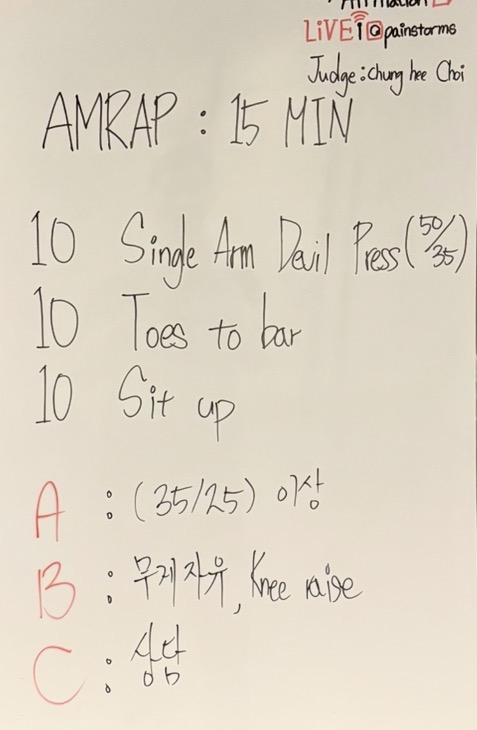 LiVE @painstorms
Judge : Chung hee Choi
AMRAP : 15 MIN
10 Single Arm Devil Press (50/35)
10 Toes to bar
10 Sit up
A : (35/25) 이상
B : 무게자유, Knee raise
C : 상담